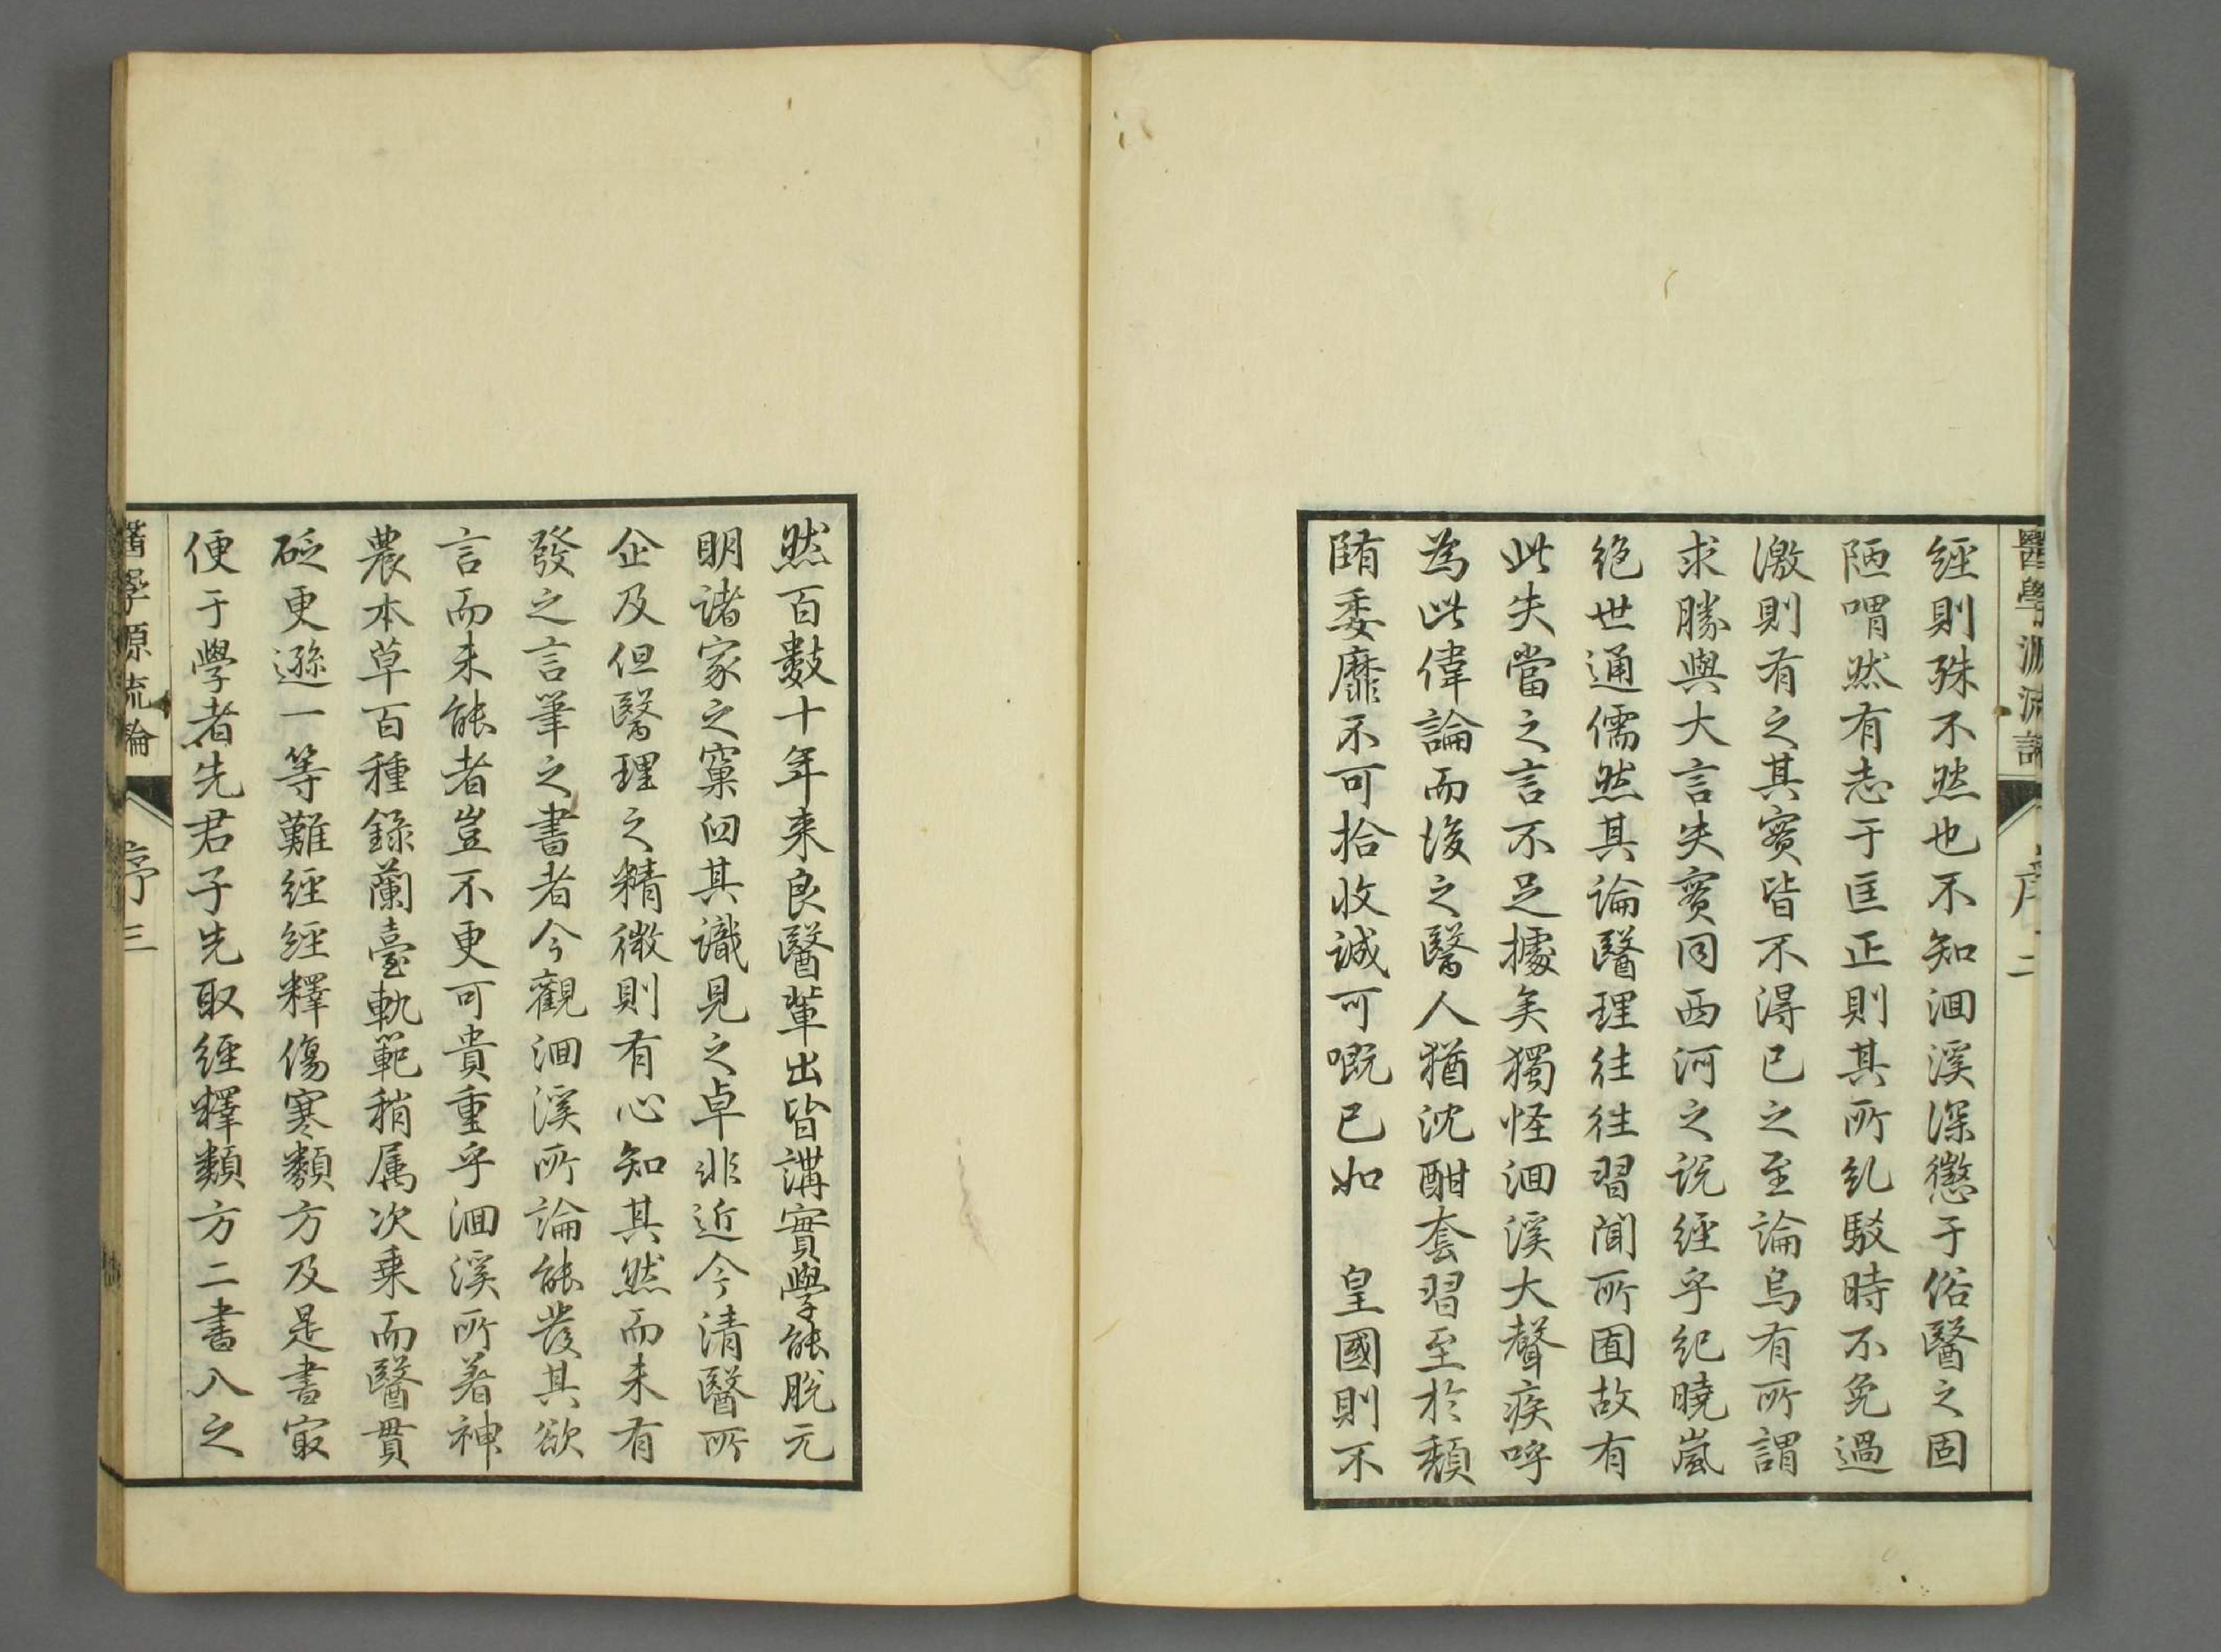 醫學源流論
序 二
經則殊不然也不知洄溪深懲于俗醫之固
陋喟然有志于匡正則其所糺駁時不免過
激則有之其實皆不得已之至論烏有所謂
求勝與大言失實同西河之說經乎紀曉嵐
絶世通儒然其論醫理往往習聞所囿故有
此失當之言不足據矣獨怪洄溪大聲疾呼
為此偉論而後之醫人猶沈酣套習至於頹
陏委靡不可拾收誠可嘅已如 皇國則不
然百數十年来良醫輩出皆講實學能脫元
明諸家之窠臼其識見之卓非近今清醫所
企及但醫理之精微則有心知其然而未有
發之言筆之書者今觀洄溪所論能發其欲
言而未能者豈不更可貴重乎洄溪所著神
農本草百種錄蘭臺軌範稍属次乗而醫貫
砭更遜一等難經經釋傷寒類方及是書㝡
便于學者先君子先取經釋類方二書入之
醫學源流論
序 三